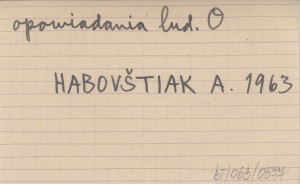 opowiadania lud. O
HABOVŠTIAK A. 1963
bT/063/0577